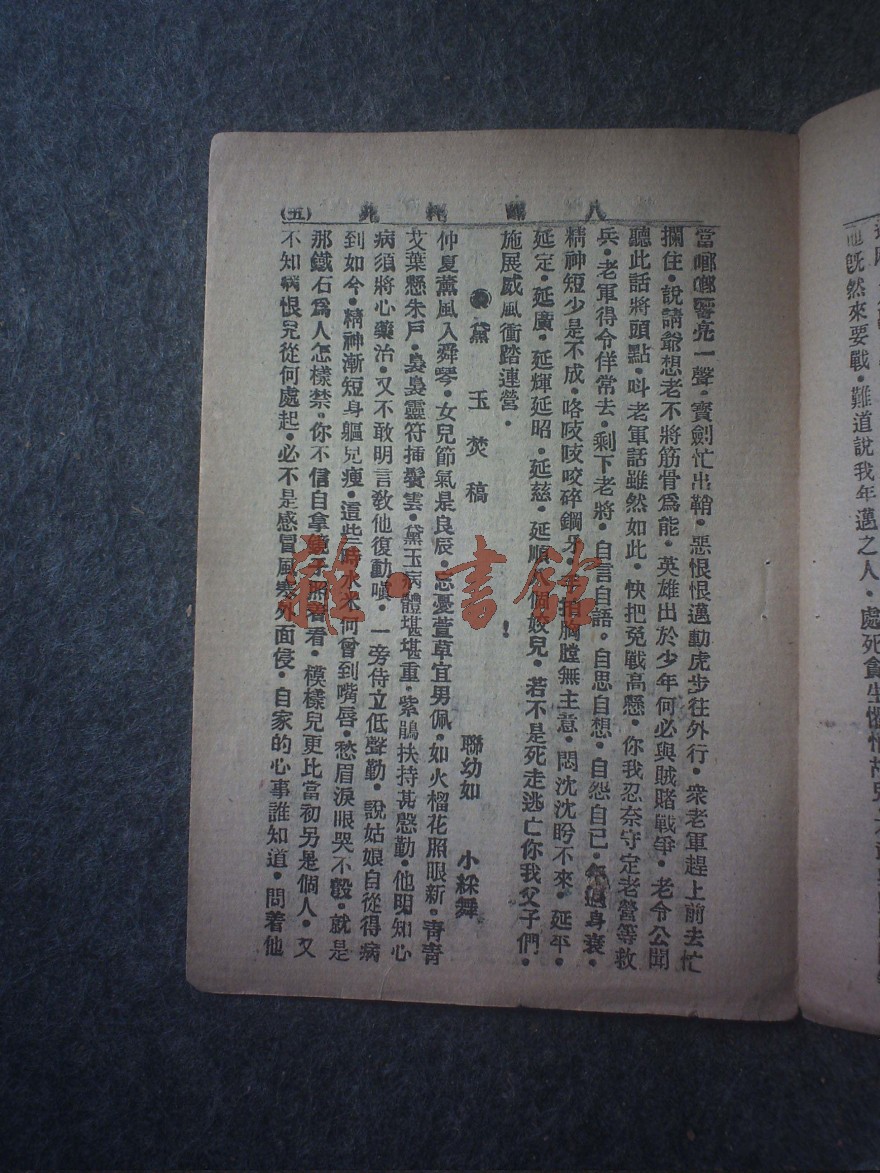 八
(五)
當啷啷響亮一聲·寶劍忙出鞘·惡恨恨邁動虎步往外行·衆老軍趕上前去忙
攔住·說請爺想老不將筋骨爲能·英雄出於少年何必與賊賭戰爭·老令公聞
聽此話將頭點·呌老軍話雖然如此·快把免戰高懸·你我忍奈守定老營等救
兵·老軍得令佯常去·剩下老將·自言自語·自思自想·自怨自己·年邁身衰·
精神短少是不成·咯吱吱咬碎鋼牙·手拍胸膛無主意·悶沈沈盼不來·延平·
延定·延廣·延輝延昭·延慈·延順個姣兒·若不是死走逃亡你我父子們·
施展威風衝踏連營·
黛玉焚稿
聯幼如 小綵舞
仲夏薰風入舜琴·女兒節氣是良辰·忘憂萱草宜男佩·如火榴花照眼新·靑靑
艾葉懸朱戶·裊裊靈符揷鬢雲·黛玉病體堪堪重·紫鵑扶持甚慇勤·他明知心
病須將心藥治·又不敢明言敎他復動嗔·一旁侍立低聲勸·說姑娘自從得病
到如今·精神漸短身軀兒瘦·這些時水米何曾到嘴唇·愁眉淚眼哭不彀·就是
那鐵石爲人怎樣禁·你不信自拿鏡子照着看·模樣兒更比當初另是個人·又
不知病恨兒從何處起·必不是感冒風寒外面侵·自家的心事誰知道·問着他
旣然來要戰·難道說我年邁之人·處死貪生
雜·書館